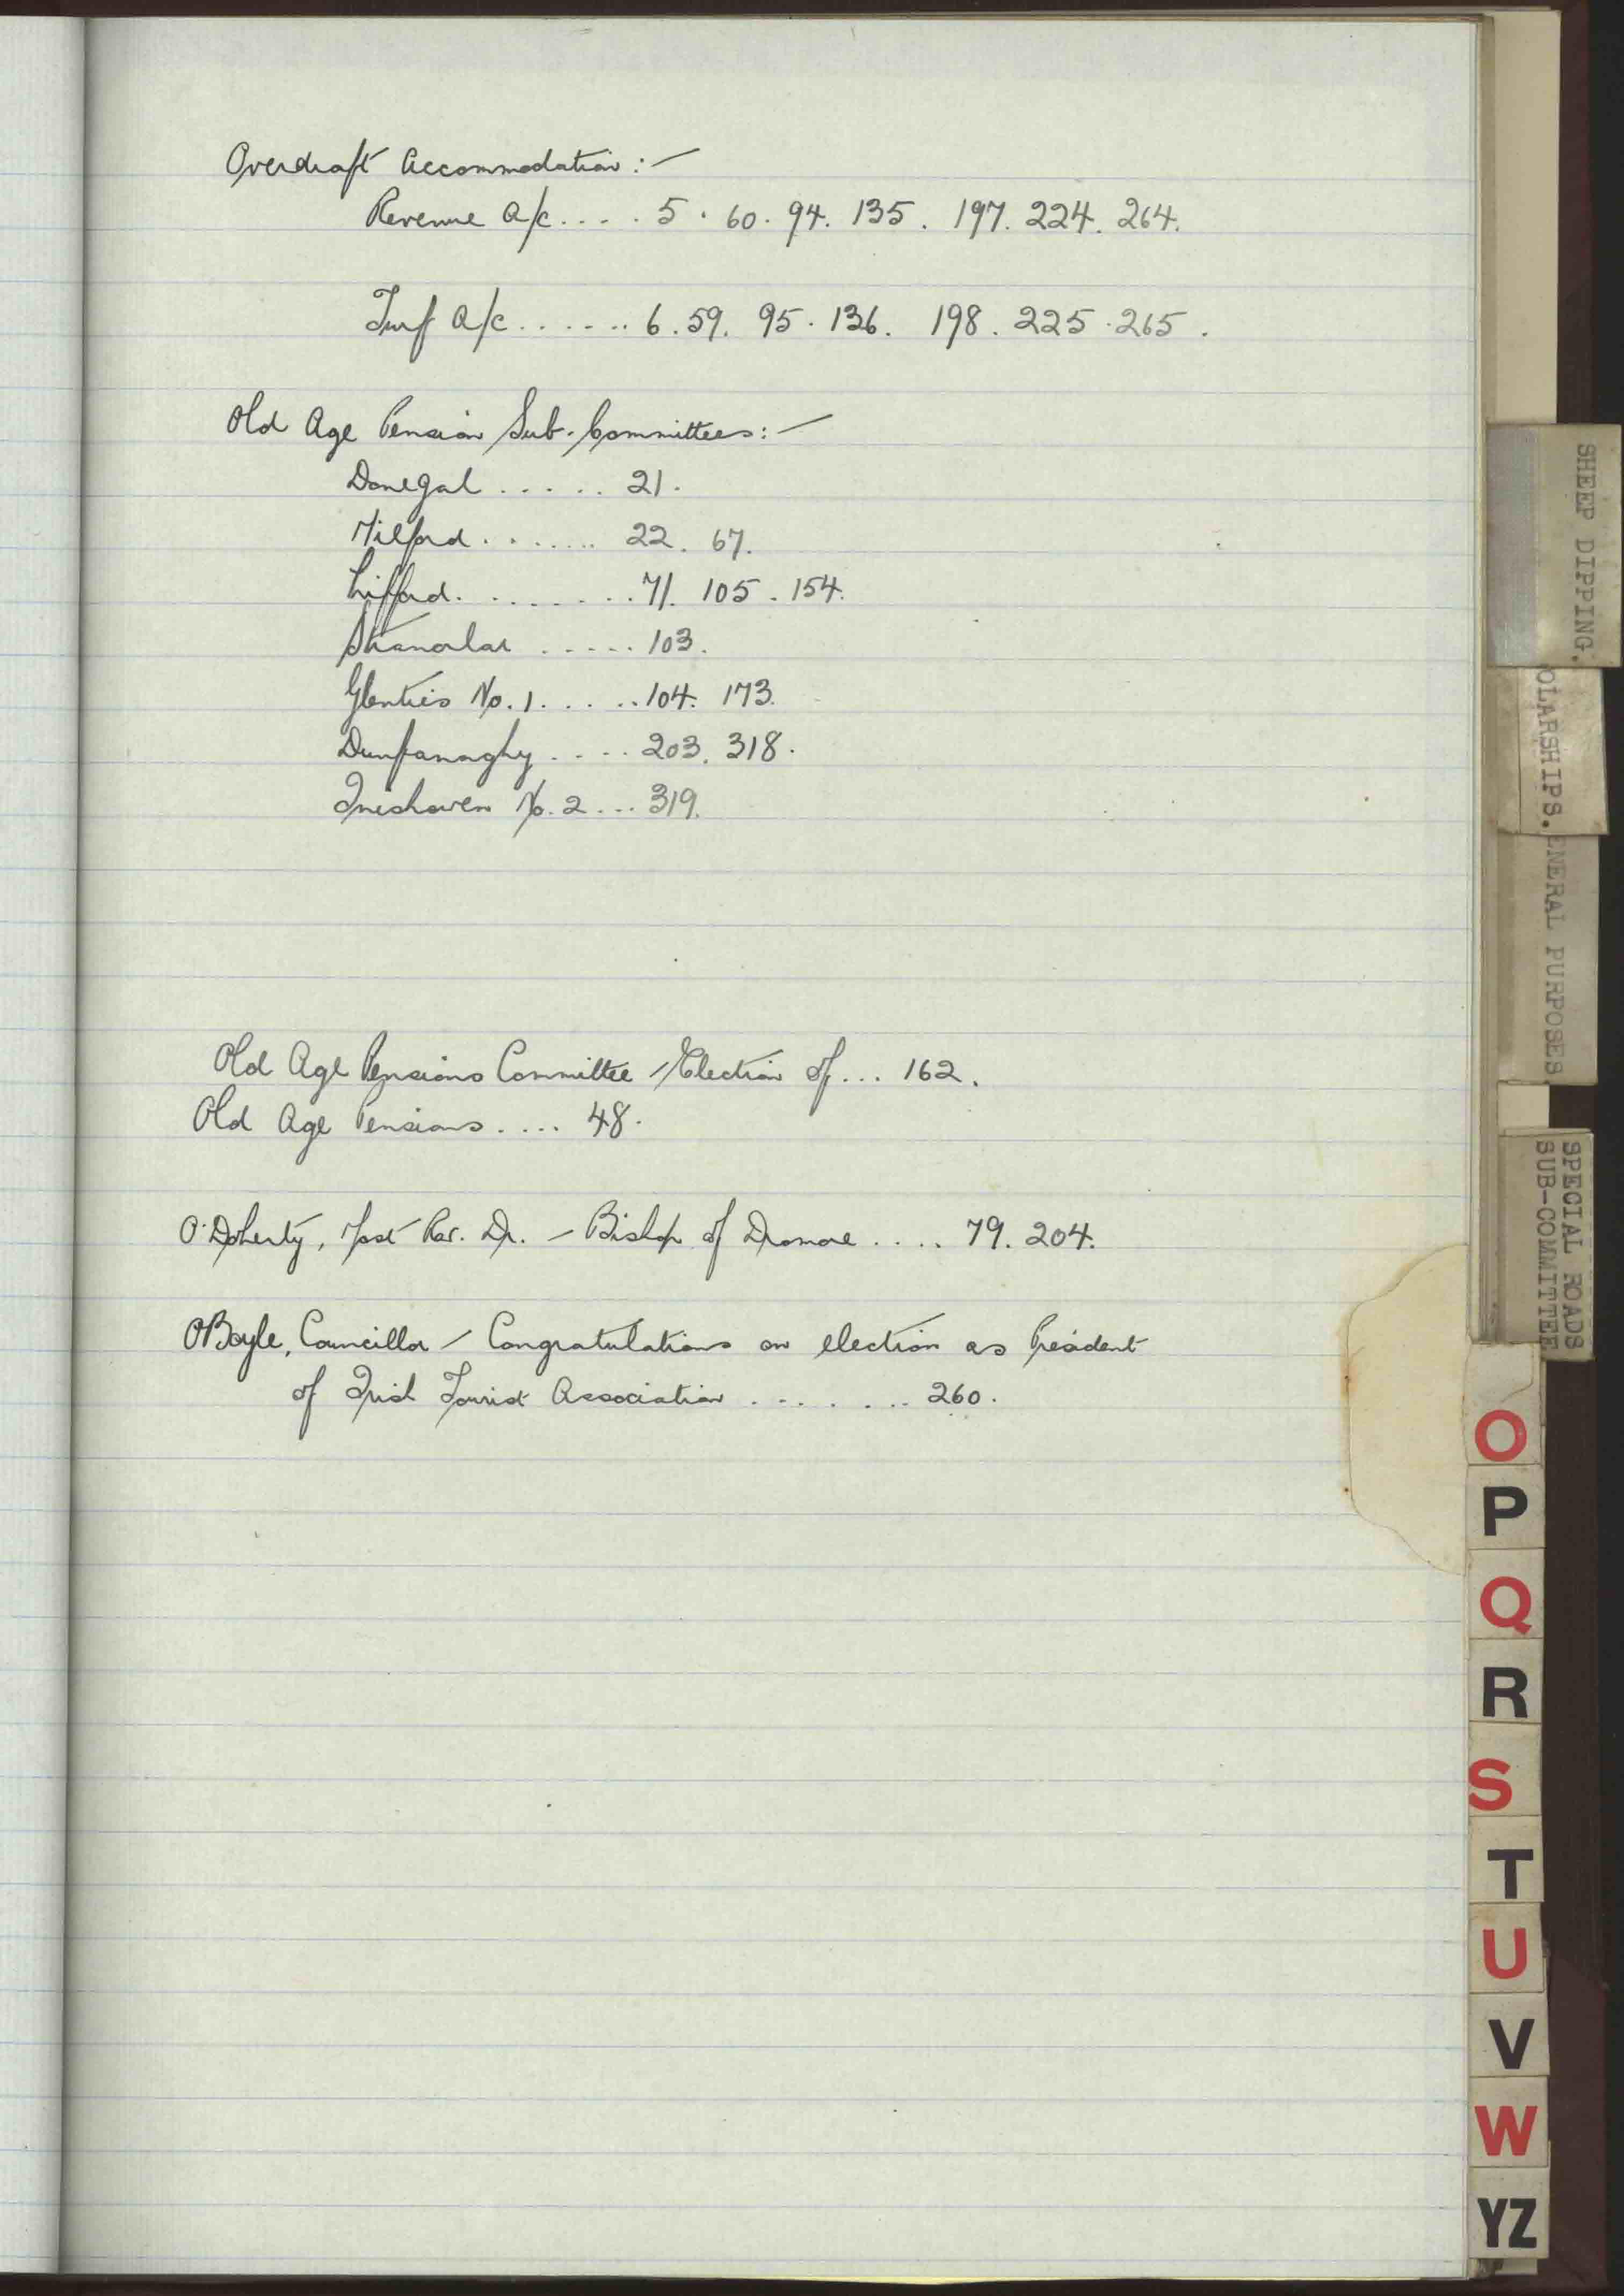 Overdraft Accommodation :-
Revenue A/c . . . . 5 . 60 . 94 . 135 . 197 . 224 . 264.
Turf A/c . . . . . . 6 . 59 . 95 . 136 . 198 . 225 . 265 .
Old Age Pension Sub-Committees :-
Donegal . . . . . 21 .
Milford . . . . . . . 22 . 67.
Lifford . . . . . . . . 71 . 105 . 154.
Stranorlar . . . . . 103 .
Glenties No. 1 . . . . . 104 . 173.
Dunfanaghy . . . . 203 . 318 .
Inishowen No. 2 . . . 319.
Old Age Pensions Committee - Election of . . . 162 .
Old Age Pensions . . . . 48 .
O'Doherty, Most Rev. Dr. - Bishop of Dromore . . . . 79 . 204.
O'Boyle, Councillor - Congratulations on election as President
of Irish Tourist Association . . . . . . . 260 .
SHEEP DIPPING.
OLARSHIPS.
ENERAL PURPOSES
SPECIAL ROADS
SUB-COMMITTEE
O
P
Q
R
S
T
U
V
W
YZ